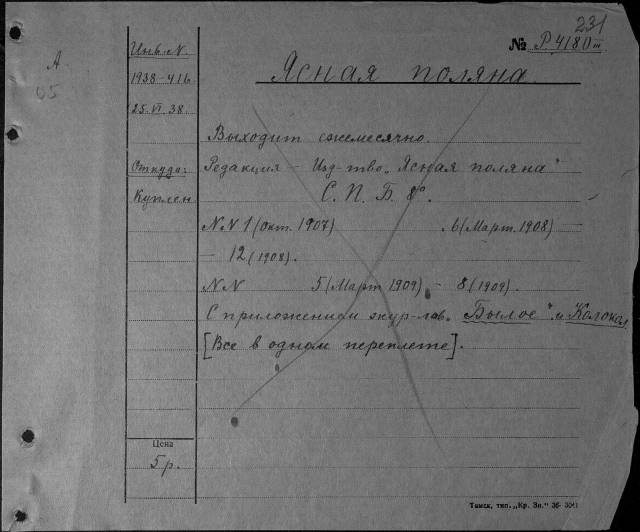 231
№ Р.4180 III
А
05
Инв. N.
1938-416
25.VI.38.
Откуда:
Куплен
Ясная поляна
Выходит ежемесячно.
Редакция – Изд-тво „Ясная поляна"
С. П. Б. 8°.
N.N 1 (окт. 1907) . 6 (Март. 1908) –
– 12 (1908).
NN 5 (Март 1909) – 8 (1909).
С приложением жур-лов „Былое" и „Колокол
[Все в одном переплете].
Цена
5 р.
Томск, тип. „Кр. Зн." 36